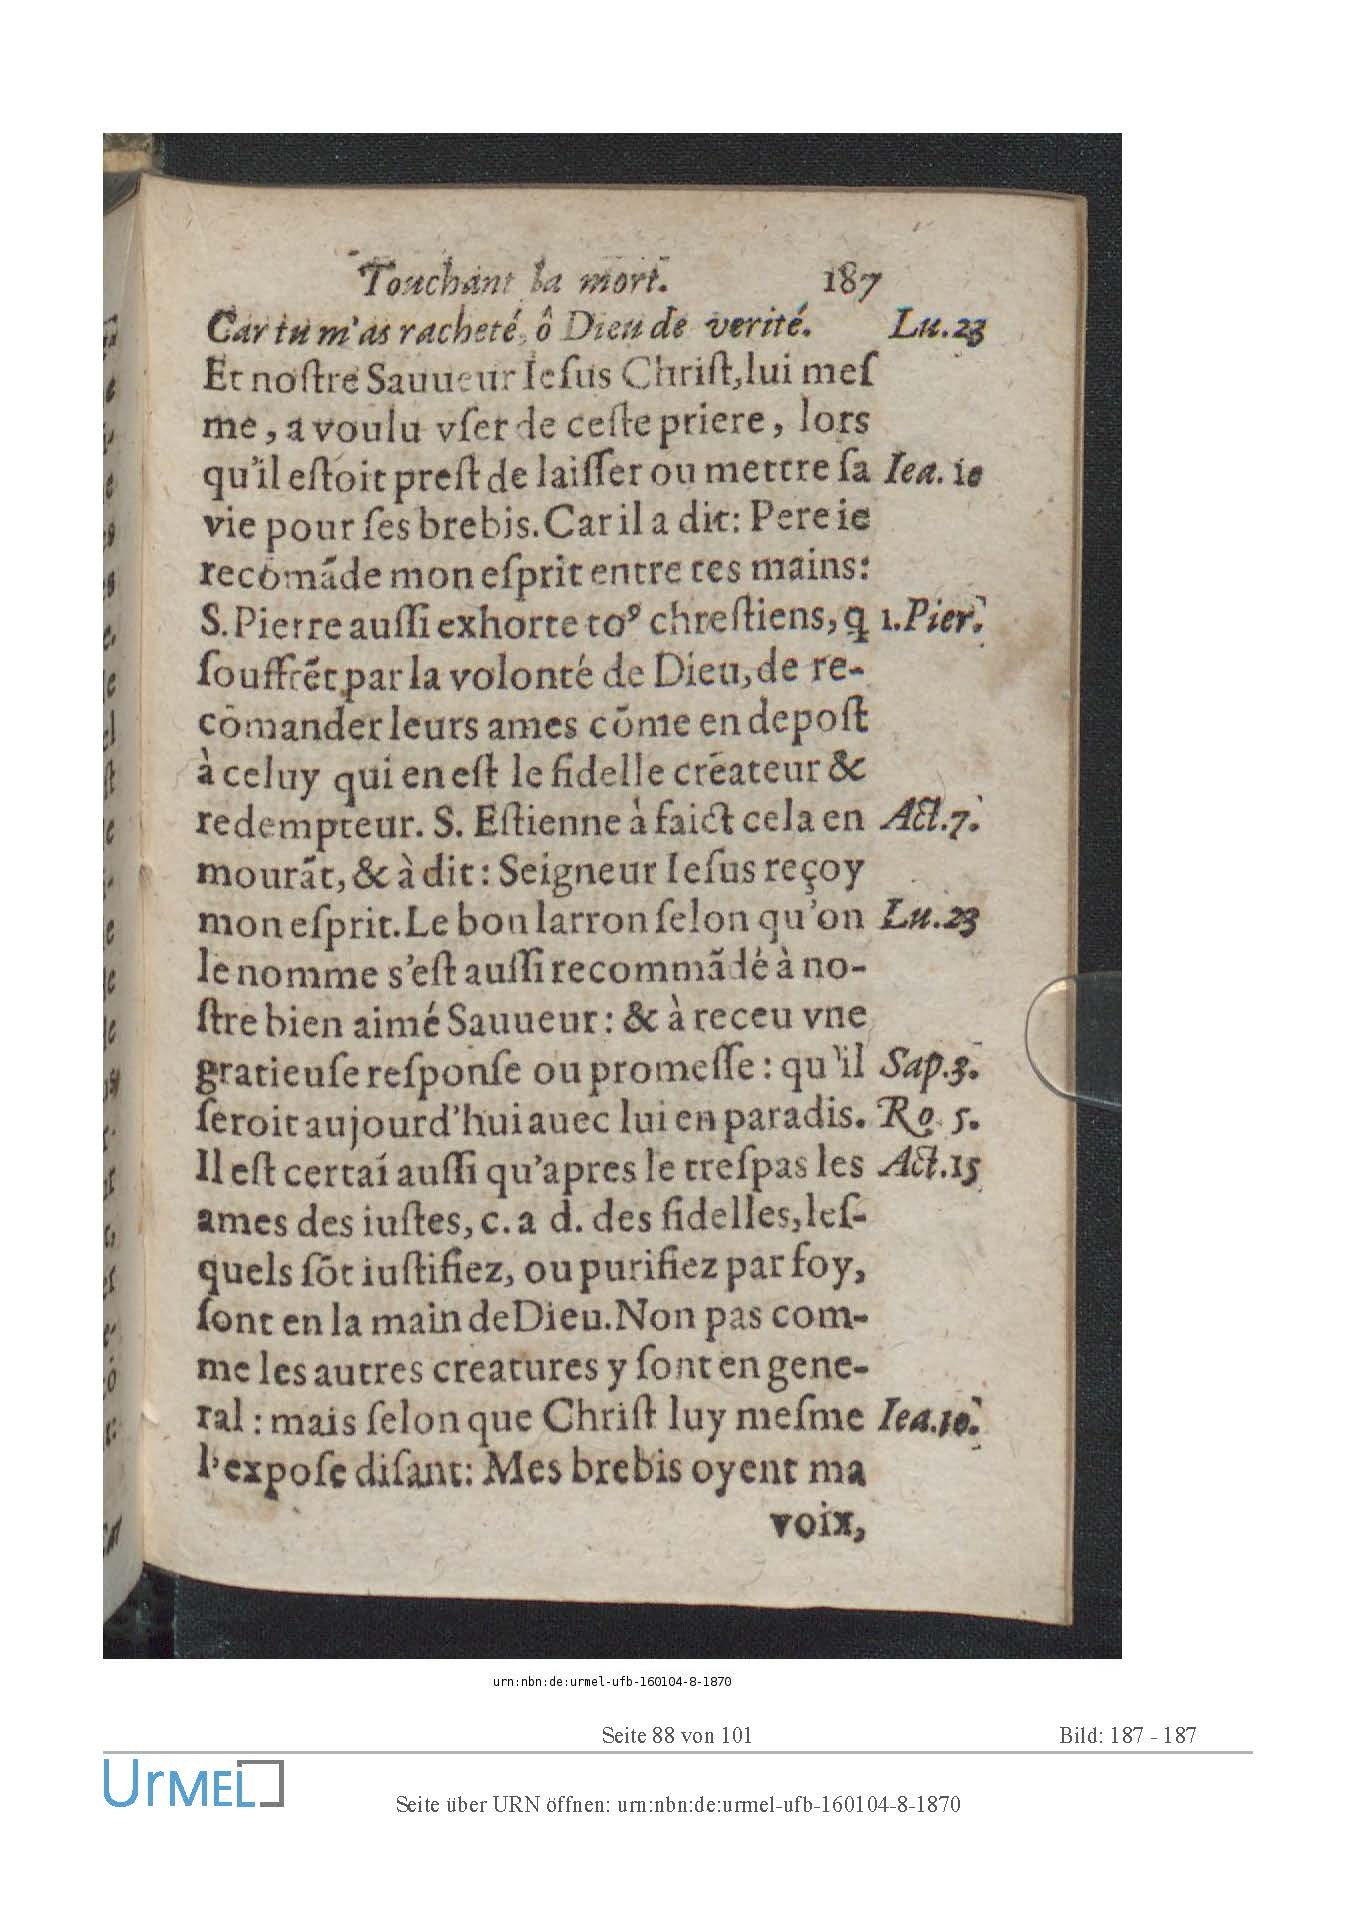 Touchant la mort. 187
Car tu m'as racheté, ô Dieu de verité. Lu.23
Et noſtre Sauueur Ieſus Chriſt, lui meſ
me, a voulu vſer de ceſte priere, lors
qu'il eſtoit preſt de laiſſer ou mettre ſa Iea. 10
vie pour ſes brebis. Car il a dit: Pere ie
recõmãde mon eſprit entre tes mains:
S. Pierre auſſi exhorte toꝰ chreſtiens, q 1.Pier.
ſouffrẽt par la volonté de Dieu, de re-
cõmander leurs ames cõme en depoſt
à celuy qui en eſt le fidelle créateur &
redempteur. S. Eſtienne à faict cela en Act.7.
mourãt, & à dit: Seigneur Ieſus reçoy
mon eſprit. Le bon larron ſelon qu'on Lu.23
le nomme s'eſt auſſi recommãdé à no-
ſtre bien aimé Sauueur: & à receu vne
gratieuſe reſponſe ou promeſſe: qu'il Sap.3.
ſeroit aujourd'hui auec lui en paradis. Ro. 5.
Il eſt certaĩ auſſi qu'apres le treſpas les Act.15
ames des iuſtes, c. a d. des fidelles, leſ-
quels ſõt iuſtifiez, ou purifiez par foy,
ſont en la main de Dieu. Non pas com-
me les autres creatures y ſont en gene-
ral: mais ſelon que Chriſt luy meſme Iea.10.
l'expoſe diſant: Mes brebis oyent ma
voix,
urn:nbn:de:urmel-ufb-160104-8-1870
Seite 88 von 101 Bild: 187 - 187
UrMEL
Seite über URN öffnen: urn:nbn:de:urmel-ufb-160104-8-1870